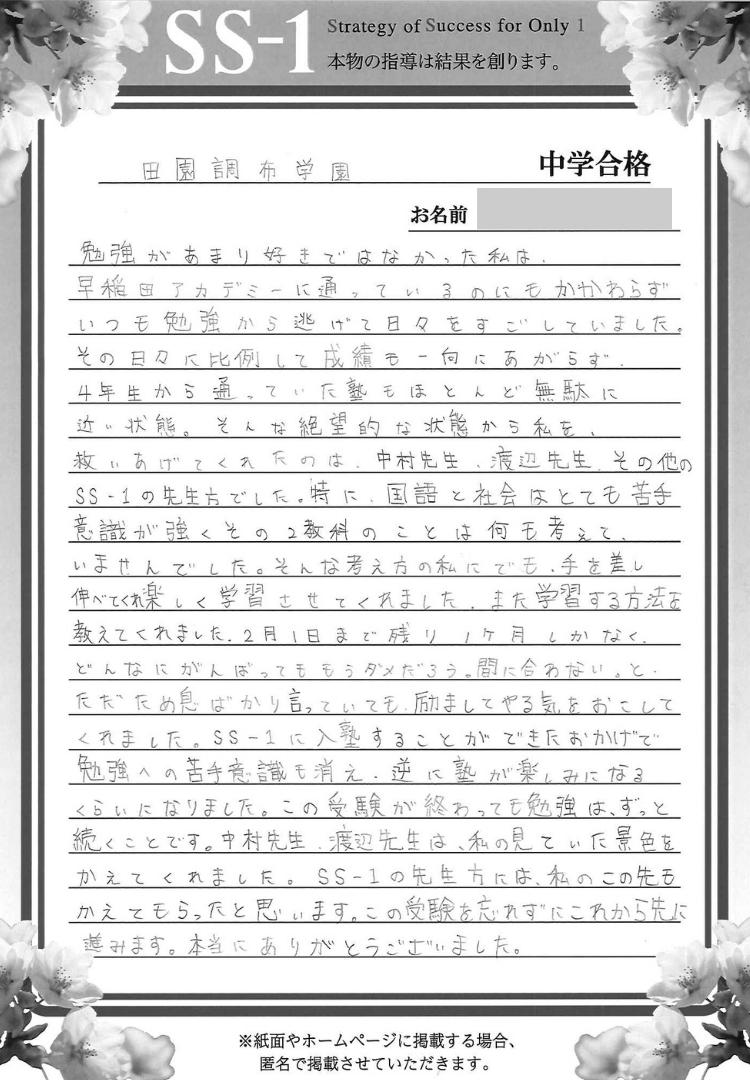 SS-1
Strategy of Success for Only 1
本物の指導は結果を創ります。
田園調布学園 中学合格
お名前
勉強があまり好きではなかった私は、
早稲田アカデミーに通っているのにもかかわらず
いつも勉強から逃げて日々をすごしていました。
その日々に比例して成績も一向にあがらず、
4年生から通っていた塾もほとんど無駄に
近い状態。そんな絶望的な状態から私を、
救いあげてくれたのは、中村先生、渡辺先生、その他の
SS-1の先生方でした。特に、国語と社会はとても苦手
意識が強くその2教科のことは何も考えて、
いませんでした。そんな考え方の私にでも、手を差し
伸べてくれ楽しく学習させてくれました、また学習する方法を
教えてくれました、2月1日まで残り1ヶ月しかなく、
どんなにがんばってももうダメだろう。間に合わない。と、
ただため息ばかり言っていても、励ましてやる気をおこして
くれました。SS-1に入塾することができたおかげで
勉強への苦手意識も消え、逆に塾が楽しみになる
くらいになりました。この受験が終わっても勉強は、ずっと
続くことです。中村先生、渡辺先生は、私の見ていた景色を
かえてくれました。SS-1の先生方には、私のこの先も
かえてもらったと思います。この受験を忘れずにこれから先に
進みます。本当にありがとうございました。
※紙面やホームページに掲載する場合、
匿名で掲載させていただきます。